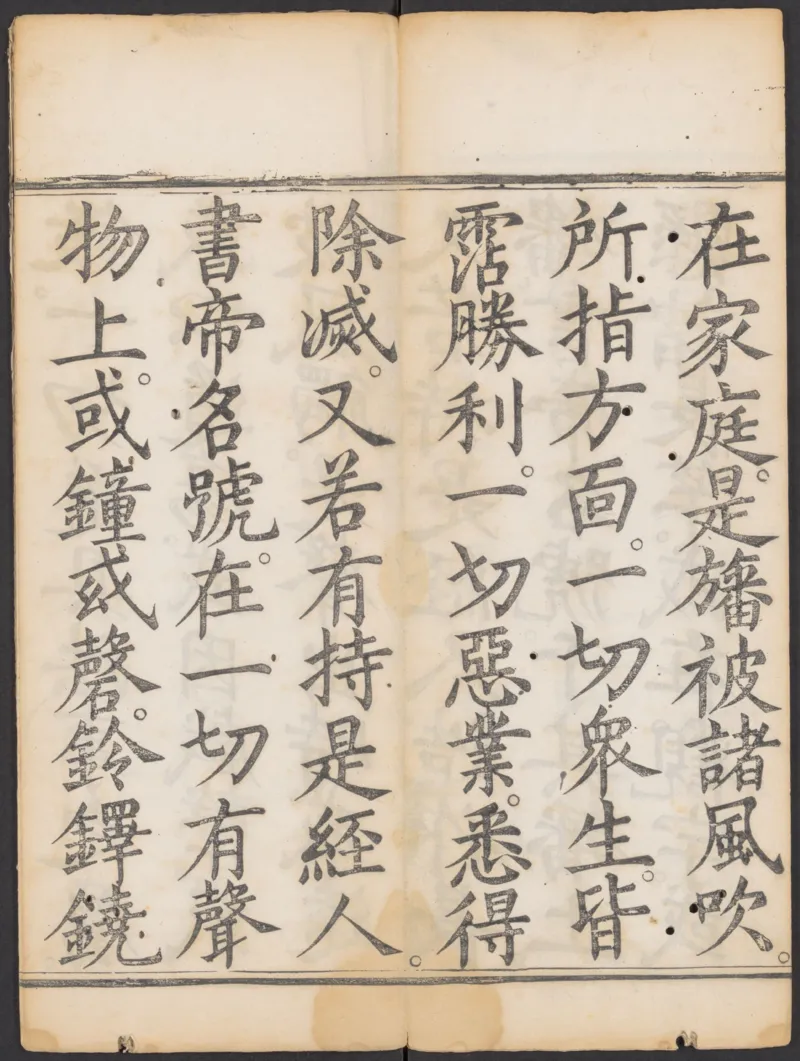 在家庭。是旛被諸風吹。
所指方面。一切衆生。皆
霑勝利。一切惡業。悉得
除滅。又若有持是経人。
書帝名號。在一切有聲
物上。或鐘或磬。鈴鐸鐃